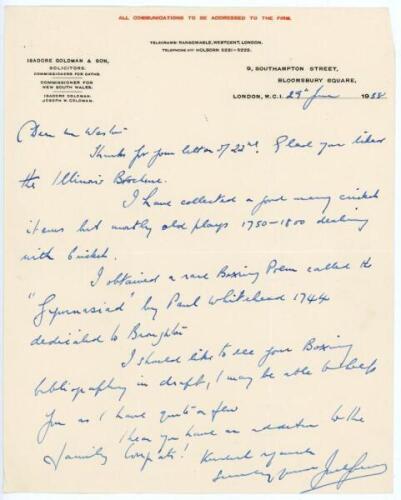 ALL COMMUNICATIONS TO BE ADDRESSED TO THE FIRM.
TELEGRAMS: RANSOMABLE, WESTCENT, LONDON.
TELEPHONE Nos HOLBORN 5221-5222.
ISADORE GOLDMAN & SON,
SOLICITORS.
COMMISSIONERS FOR OATHS.
COMMISSIONER FOR
NEW SOUTH WALES.
ISADORE GOLDMAN.
JOSEPH W. GOLDMAN.
9, SOUTHAMPTON STREET,
BLOOMSBURY SQUARE,
LONDON, W.C.1. 29th June 1958
Dear Mr Weston
Thanks for your letter of 22nd. Glad you liked
the Illinois Brochure.
I have collected a good many cricket
items but mostly old plays 1750-1800 dealing
with Cricket.
I obtained a rare Boxing Poem called the
"Gymnasiad" by Paul Whitehead 1744
dedicated to Broughton
I should like to see your Boxing
bibliography in draft, I may be able to help
you as I have quite a few
I hear you have an addition to the
family Congrats! Kindest regards
Sincerely yours